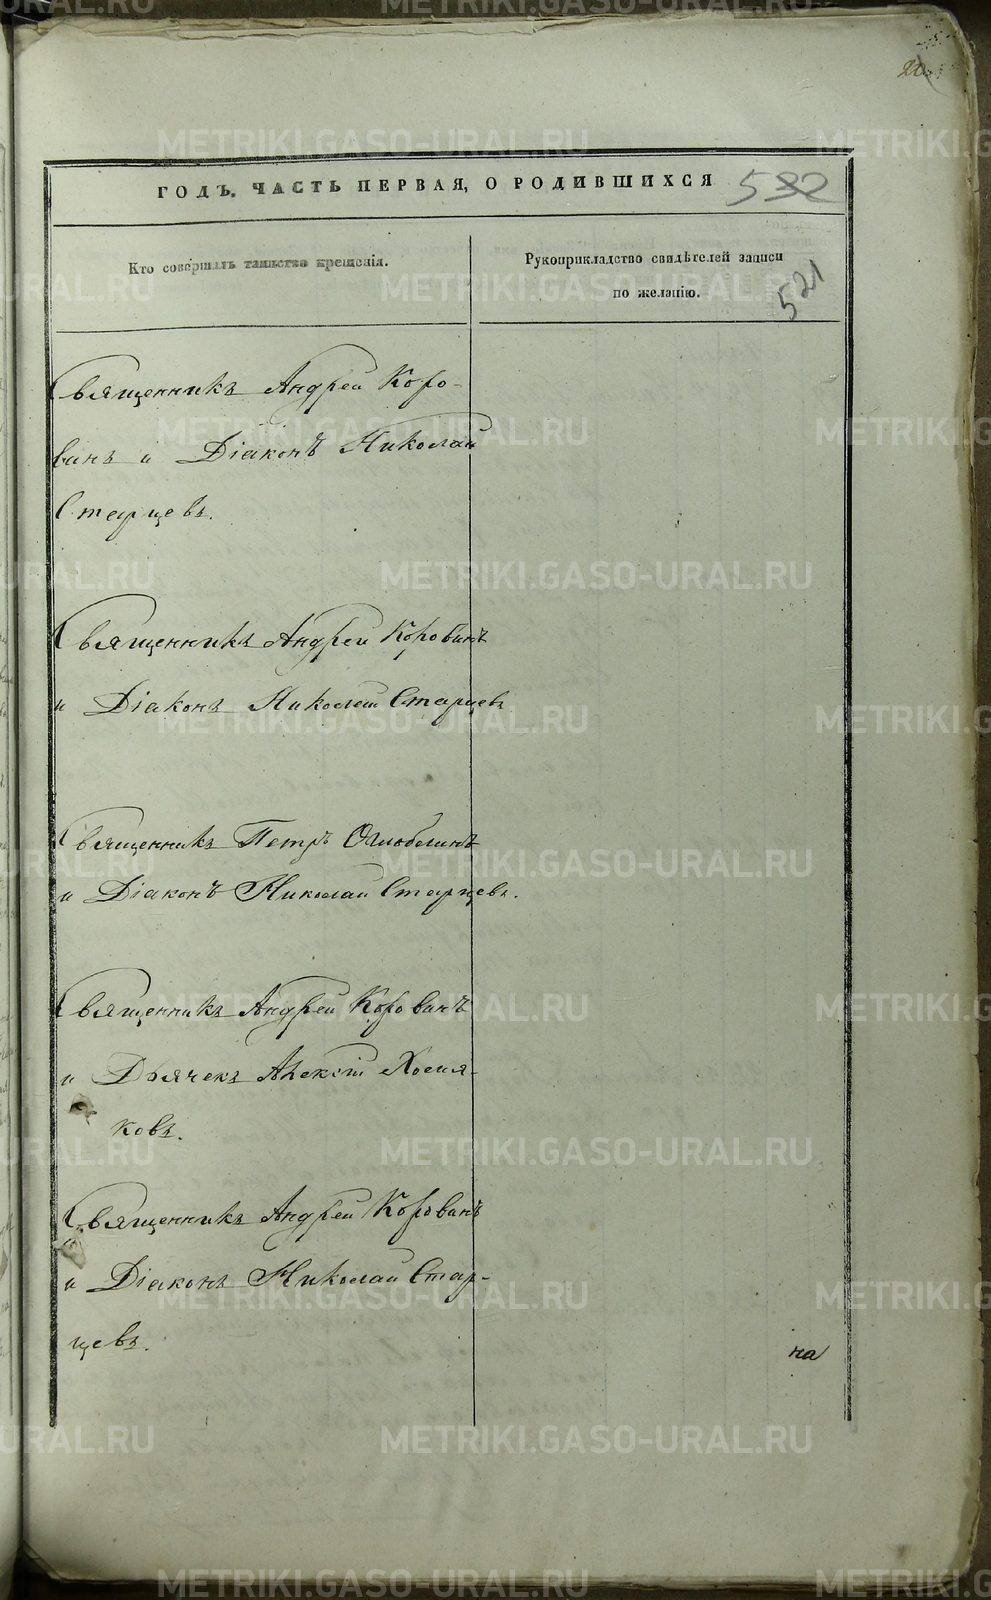 ГОДЪ. ЧАСТЬ ПЕРВАЯ, О РОДИВШИХСЯ 532
Кто совершалъ таинство крещенія.
Рукоприкладство свидѣтелей записи
по желанію.
521
Священникъ Андрей Коро-
винъ и Діаконъ Николай
Старцевъ.
Священникъ Андрей Коровинъ
и Діаконъ Николай Старцевъ
Священникъ Петръ
и Діаконъ Николай Старцевъ.
Священникъ Андрей Коровинъ
и Дьячекъ Алексѣй Хомя-
ковъ.
Священникъ Андрей Коровинъ
и Діаконъ Николай Стар-
цевъ.
на
METRIKI.GASO-URAL.RU